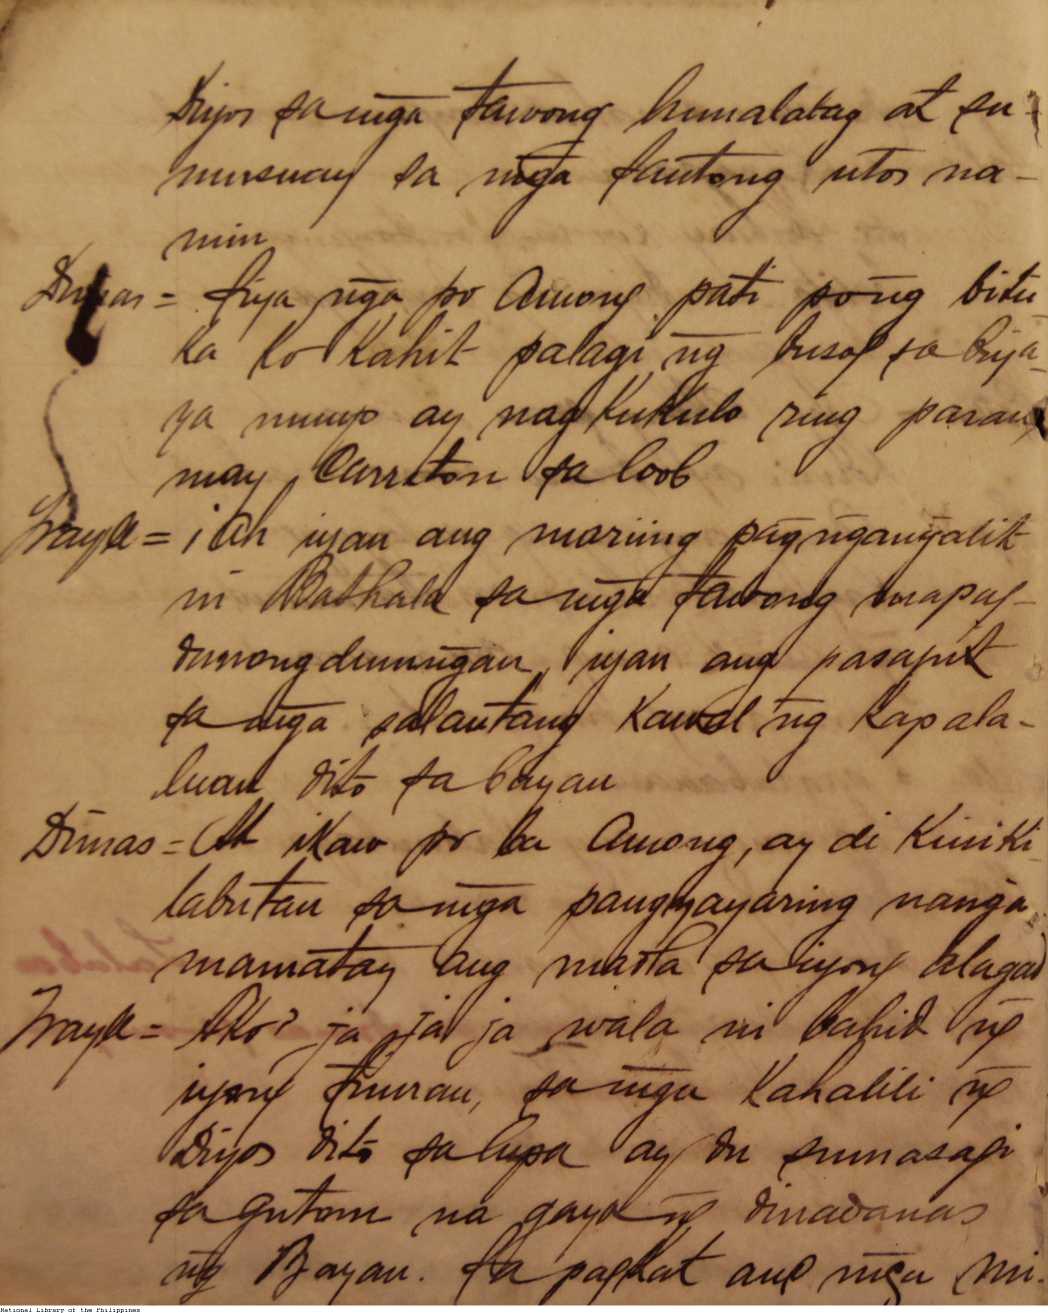 Diyos sa mga tawong humalabag at su-
musuay sa mga santong utos na-
min
Dimas = Siya nga po Among pati pong bitu
ka ko kahit palagi ng busog sa biya-
ya ninyo ay nagkukulo ring parang
may Carreton sa loob
Frayle = ¡Ah iyan ang mariing pagngangalit
ni Bathala sa mga tawong mapag-
dunongdunungan, iyan ang pasapit
sa mga salantang Kawal ng Kapala-
luan dito sa bayan
Dimas = At ikaw po ba Among, ay di Kiniki
labutan sa mga pangyayaring nanga
mamatay ang madla sa iyong alagad
Frayle = Ako? ja ja ja wala ni bahid ng
iyong tinuran, sa mga Kahalili ng
Diyos dito sa lupa ay di sumasagi
sa gutom na gaya ng dinadanas
ng Bayan. Sa pagkat ang mga mi-
National Library of the Philippines